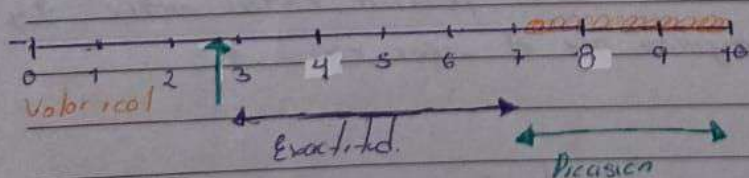 0 1 2 3 4 5 6 7 8 9 10
Valor real
Exactitud.
Picasion